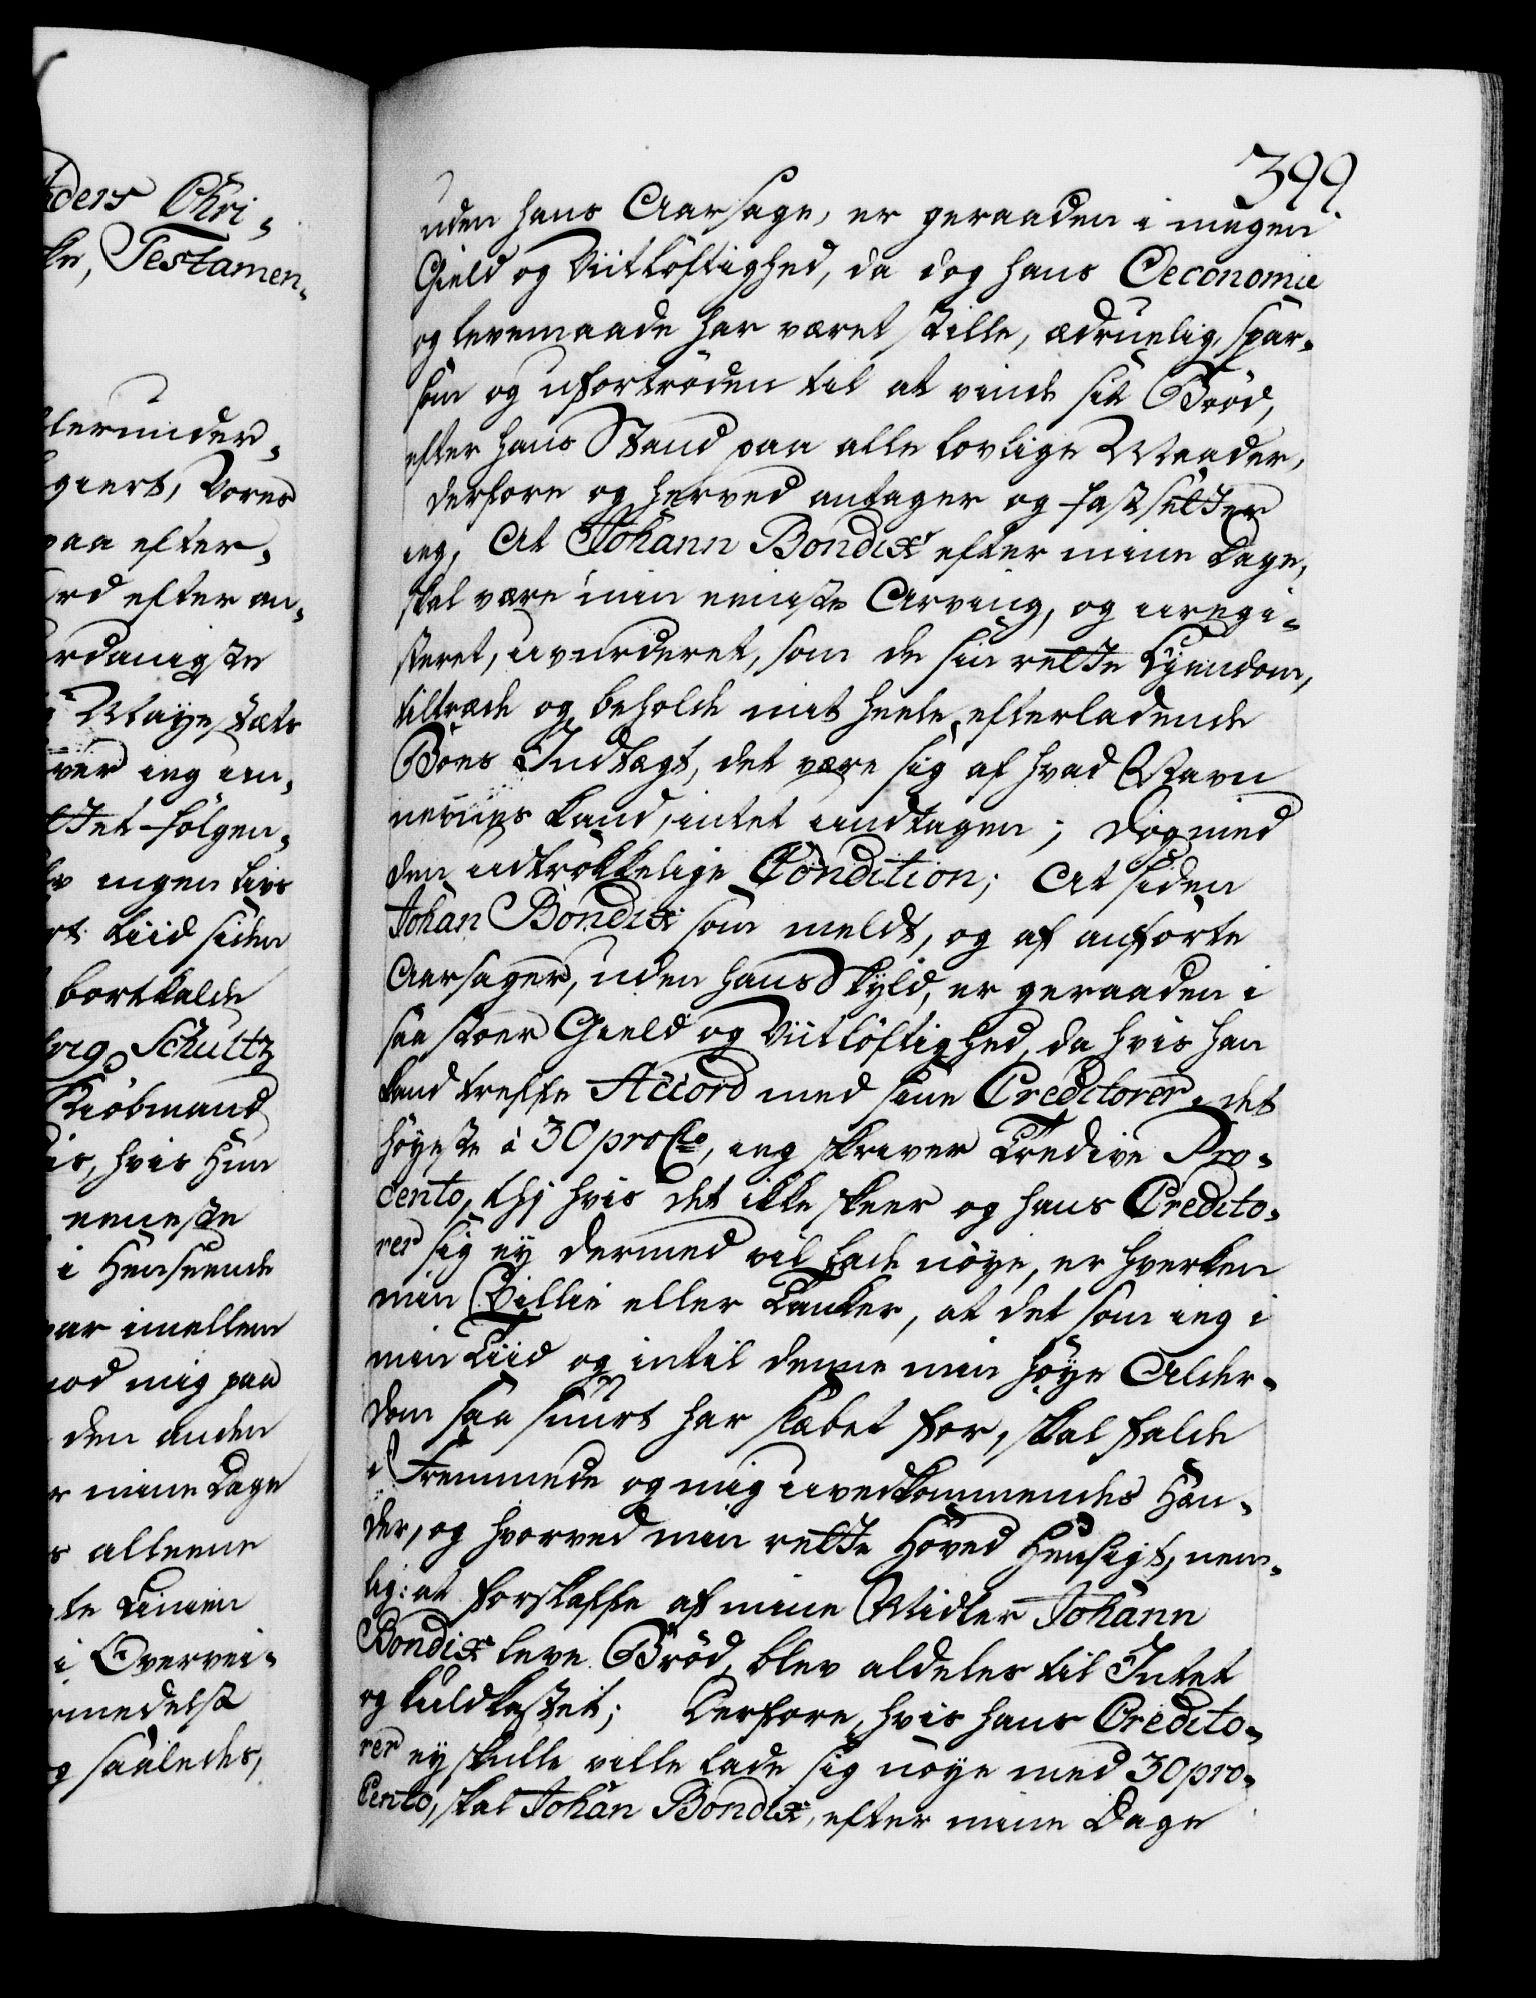 399.
uden hans Aarsage, er geraaden i megen
Gield og Viitløftighed, da dog hans Oeconomie
og levemaade har været stille, ædruelig, spar-
som og ufortrøden til at vinde sit Brød,
efter hans Stand paa alle lovlige Maader,
derfore og herved antager og fastsetter
ieg, At Johann Bondix efter mine Dage,
skal være min eeniste Arving, og uregi-
streret, uvurderet, som de sin rette Eyendom,
tiltræde og beholde mit heele efterladende
Boes Indtægt, det være sig af hvad Navn
nevnes kand, intet undtagen; dog med
den udtrøkkelige Condition; At siden
Johan Bondix som meldt, og af anførte
Aarsager, uden hans Skyld, er geraaden i
saa stoer Gield og Viitløftighed, da hvis han
kand treffe Accord med sine Creditorer, det
høyeste à 30 pro Cto, ieg skriver Tredive Pro-
cento, thj hvis det ikke skeer og hans Credito-
rer sig ey dermed vil lade nøye, er hverken
min Villie eller Tanker, at det som ieg i
min Tiid og intil denne min høye Alder-
dom saa suurt har slæbet for, skal falde
i Fremmede og mig uvedkommendes Hæn-
der, og hvorved min rette Hoved Hensigt, nem-
lig: at forskaffe af mine Midler Johann
Bondix leve Brød, blev aldeles til Intet
og kuldkastet; Derfore, hvis hans Credito-
rer ey skulle ville lade sig nøye med 30 pro-
Cento, skal Johan Bondix, efter mine Dage